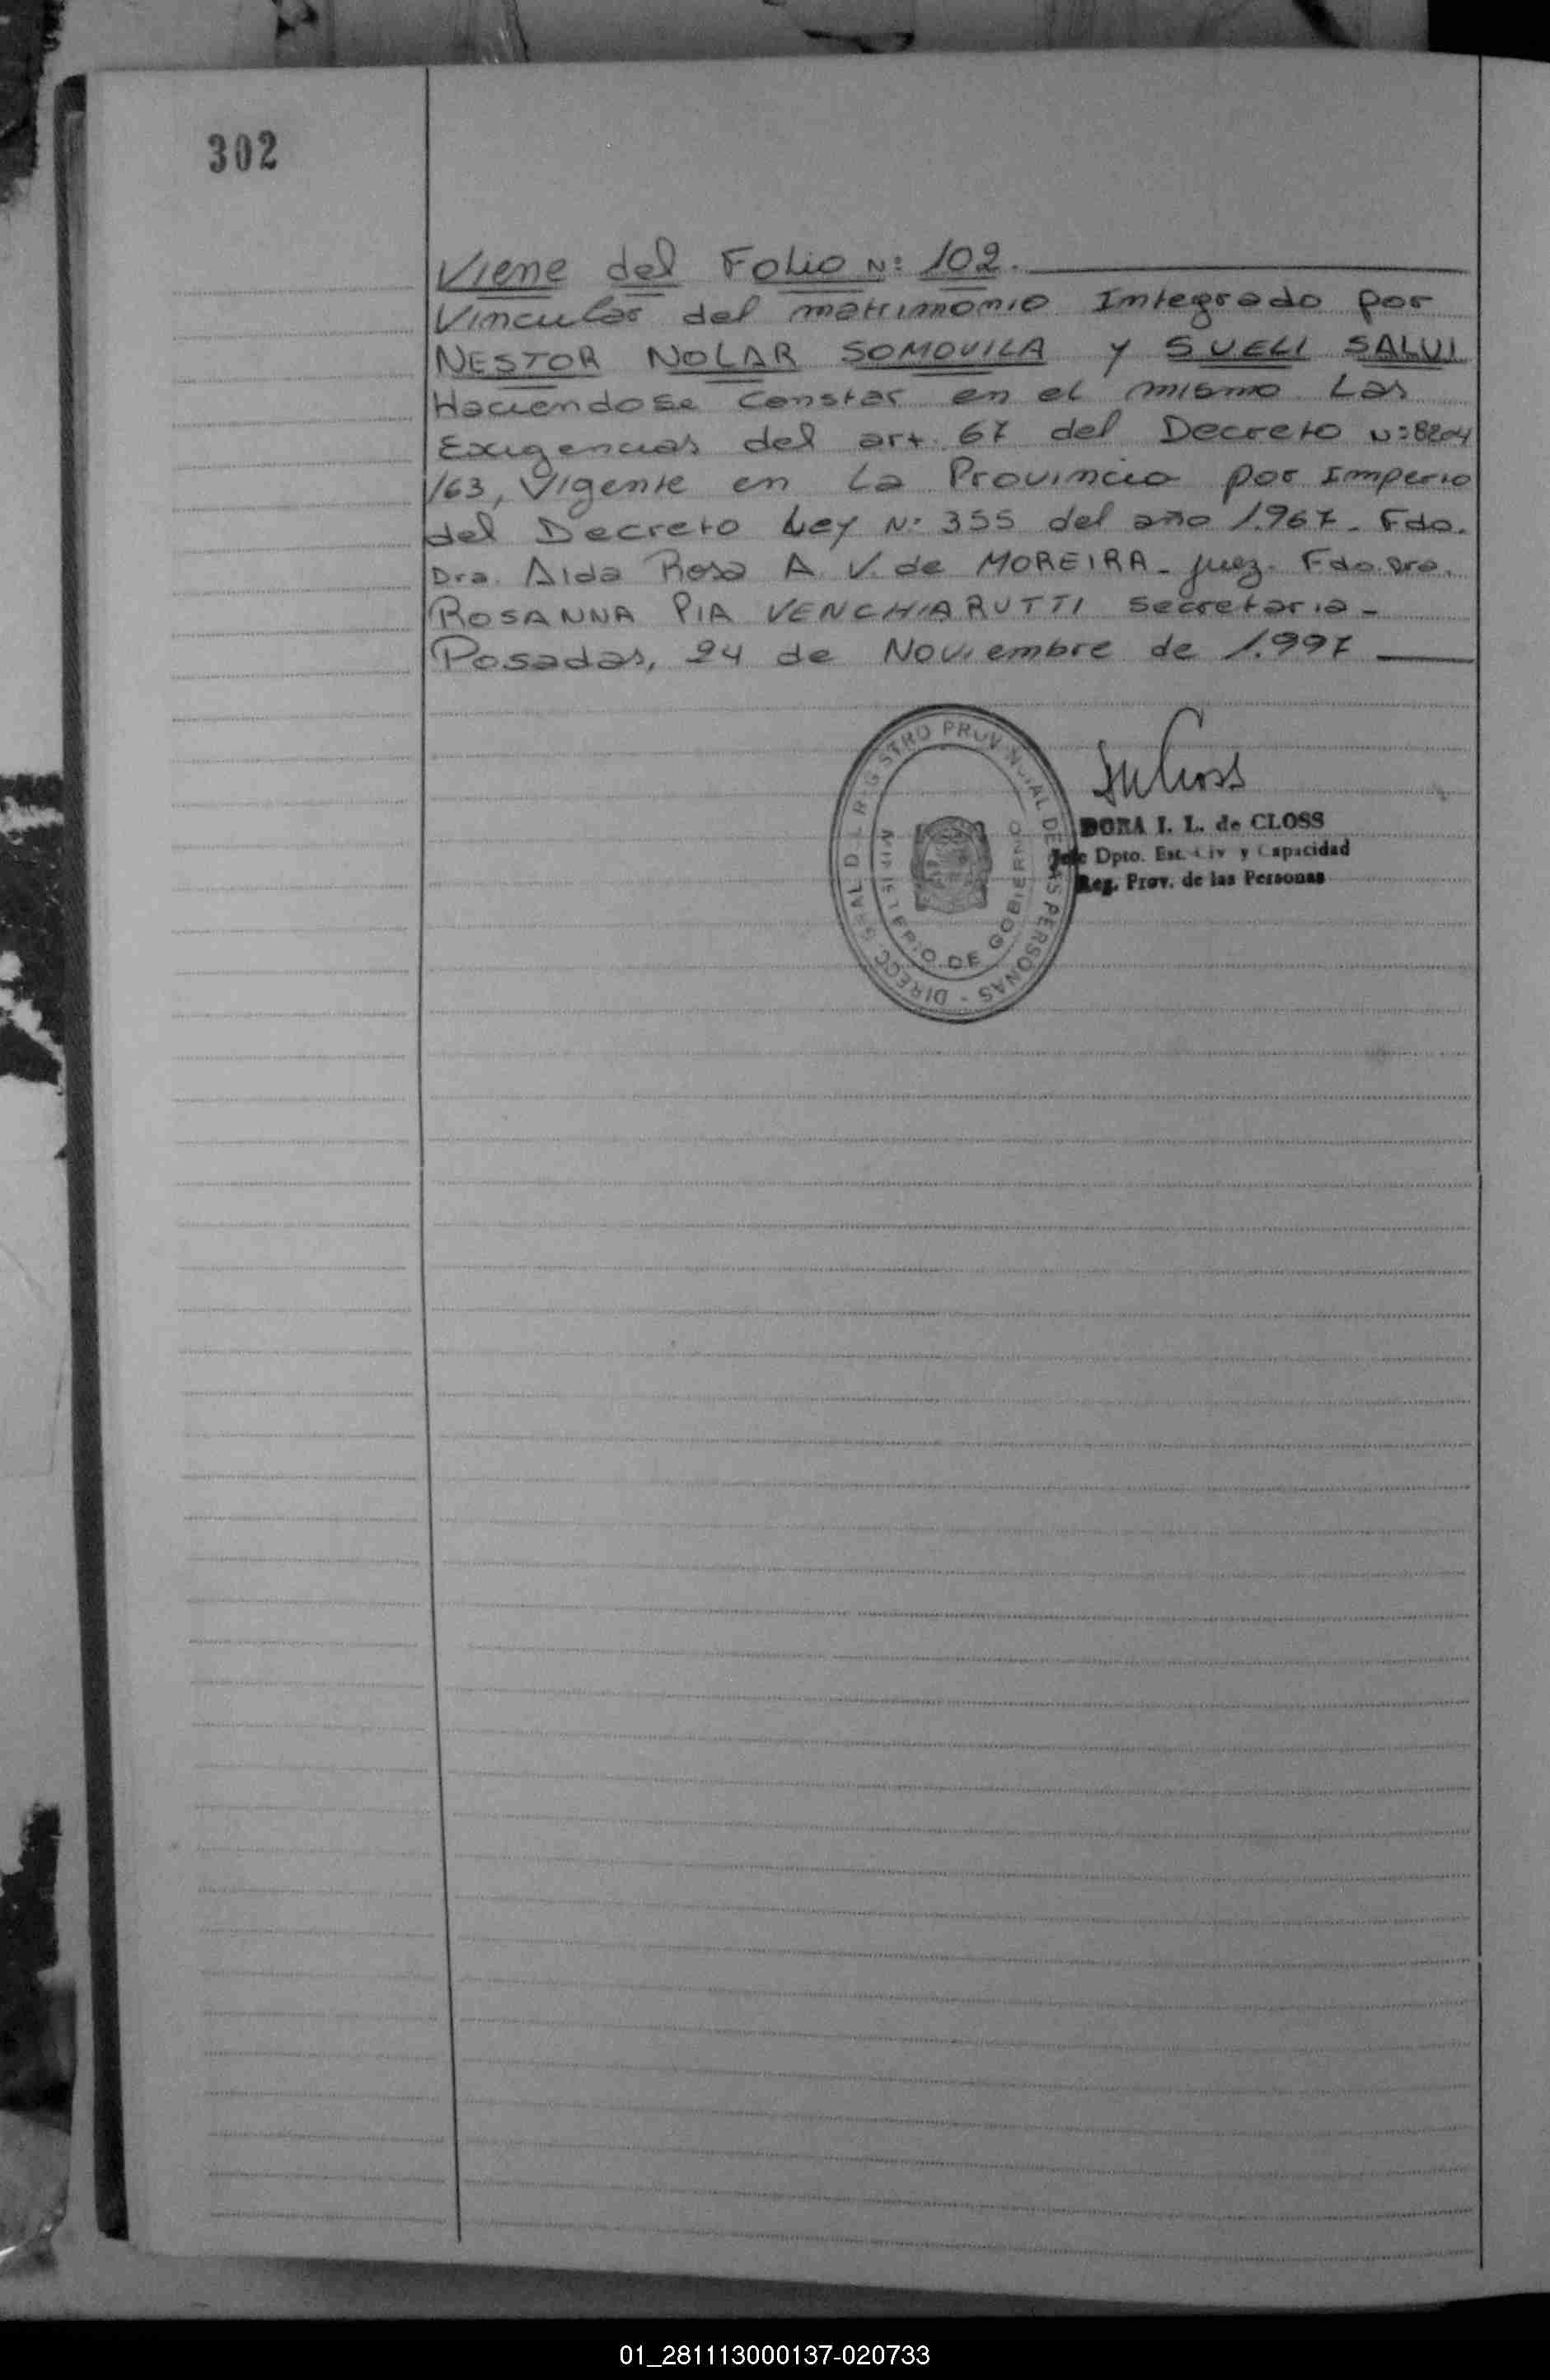 302
Viene del Folio N: 102.
Vincular del matrimonio Integrado por
NESTOR NOLAR SOMOVILA y SUELI SALVI
Haciendose Constar en el mismo Las
Exigencias del art. 67 del Decreto N:8204
/63, Vigente en La Provincia por Imperio
del Decreto Ley N: 355 del año 1.967. Fdo.
Dra. Aida Rosa A. V. de MOREIRA - Juez. Fdo. Dra.
ROSANNA PIA VENCHIARUTTI Secretaria -
Posadas, 24 de Noviembre de 1.997
DIRECC. GRAL. DEL REGISTRO PROVINCIAL DE LAS PERSONAS -
MINISTERIO DE GOBIERNO
DORA I. L. de CLOSS
Jefe Dpto. Est. Civ y Capacidad
Reg. Prov. de las Personas
01_281113000137-020733